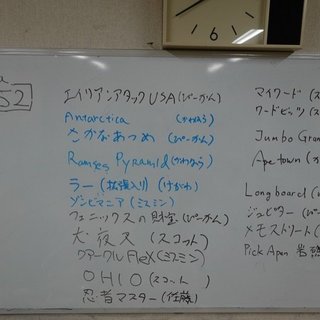 52
エイリアンアタックUSA(ぴーかん)
Antarctica (かわら)
さかなあつめ (ぴーかん)
Ramses Pyramid(かわら)
ラー (拡張入り) (けがわ)
ゾンビマニア (ミスミン)
フェニックスの財宝(ぴーかん)
犬夜叉 (スコット)
クアークルFlex(ミスミン)
OHIO (スコット)
忍者マスター(佐藤)
マイワード(ス
ワードビッツ(ス
Jumbo Gran
Ape town (か
Longboard (
ジュピター (
メモストリート(
Pick Apen